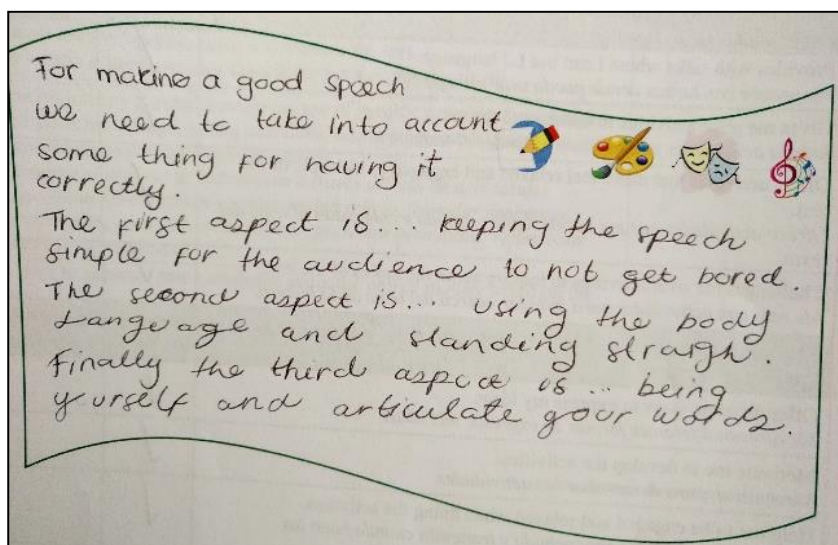 For making a good speech
we need to take into account
some thing for having it
correctly.
The first aspect is... keeping the speech
simple for the audience to not get bored.
The second aspect is... using the body
Language and standing straigh.
Finally the third aspect is... being
yurself and articulate your words.